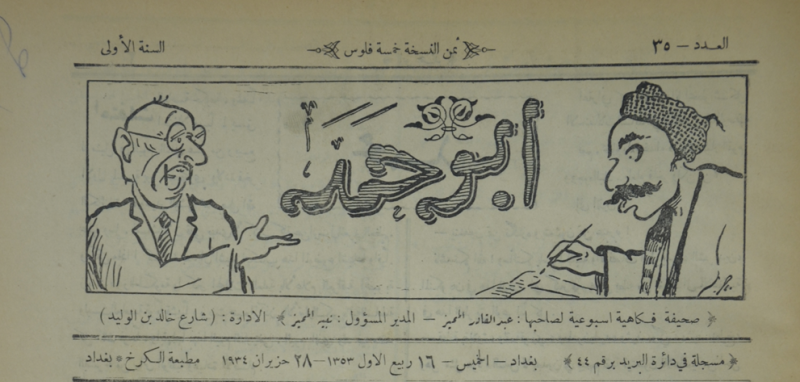 العدد — ٣٥
ثمن النسخة خمسة فلوس
السنة الأولى
ابو حمد
﴿ صحيفة فكاهية اسبوعية لصاحبها : عبدالقادر المميز — المدير المسؤول : نجيه المميز ﴾ الادارة : (شارع خالد بن الوليد)
﴿ مسجلة في دائرة البريد برقم ٤٤ ﴾ بغداد — الخميس — ١٦ ربيع الاول ١٣٥٣ — ٢٨ حزيران ١٩٣٤ مطبعة الكرخ * بغداد